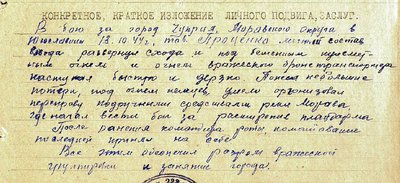 КОНКРЕТНОЕ, КРАТКОЕ ИЗЛОЖЕНИЕ ЛИЧНОГО ПОДВИГА, ЗАСЛУГ.
В бою за город Чуприя, Моравского округа в
Югославии 13.10.44г., тов. Проценко малый состав
взвода развернул сходу и под бешеным пулеметным
огнем и огнем вражеского бронетранспортера
наступал быстро и дерзко. Понеся небольшие
потери, под огнем немцев, умело организовал
переправу подручными средствами реки Морава
где начал вести бой за расширение плацдарма
После ранения командира роты командование
последней принял на себя.
Всем этим обеспечил разгром вражеской
группировки и занятие города.
222